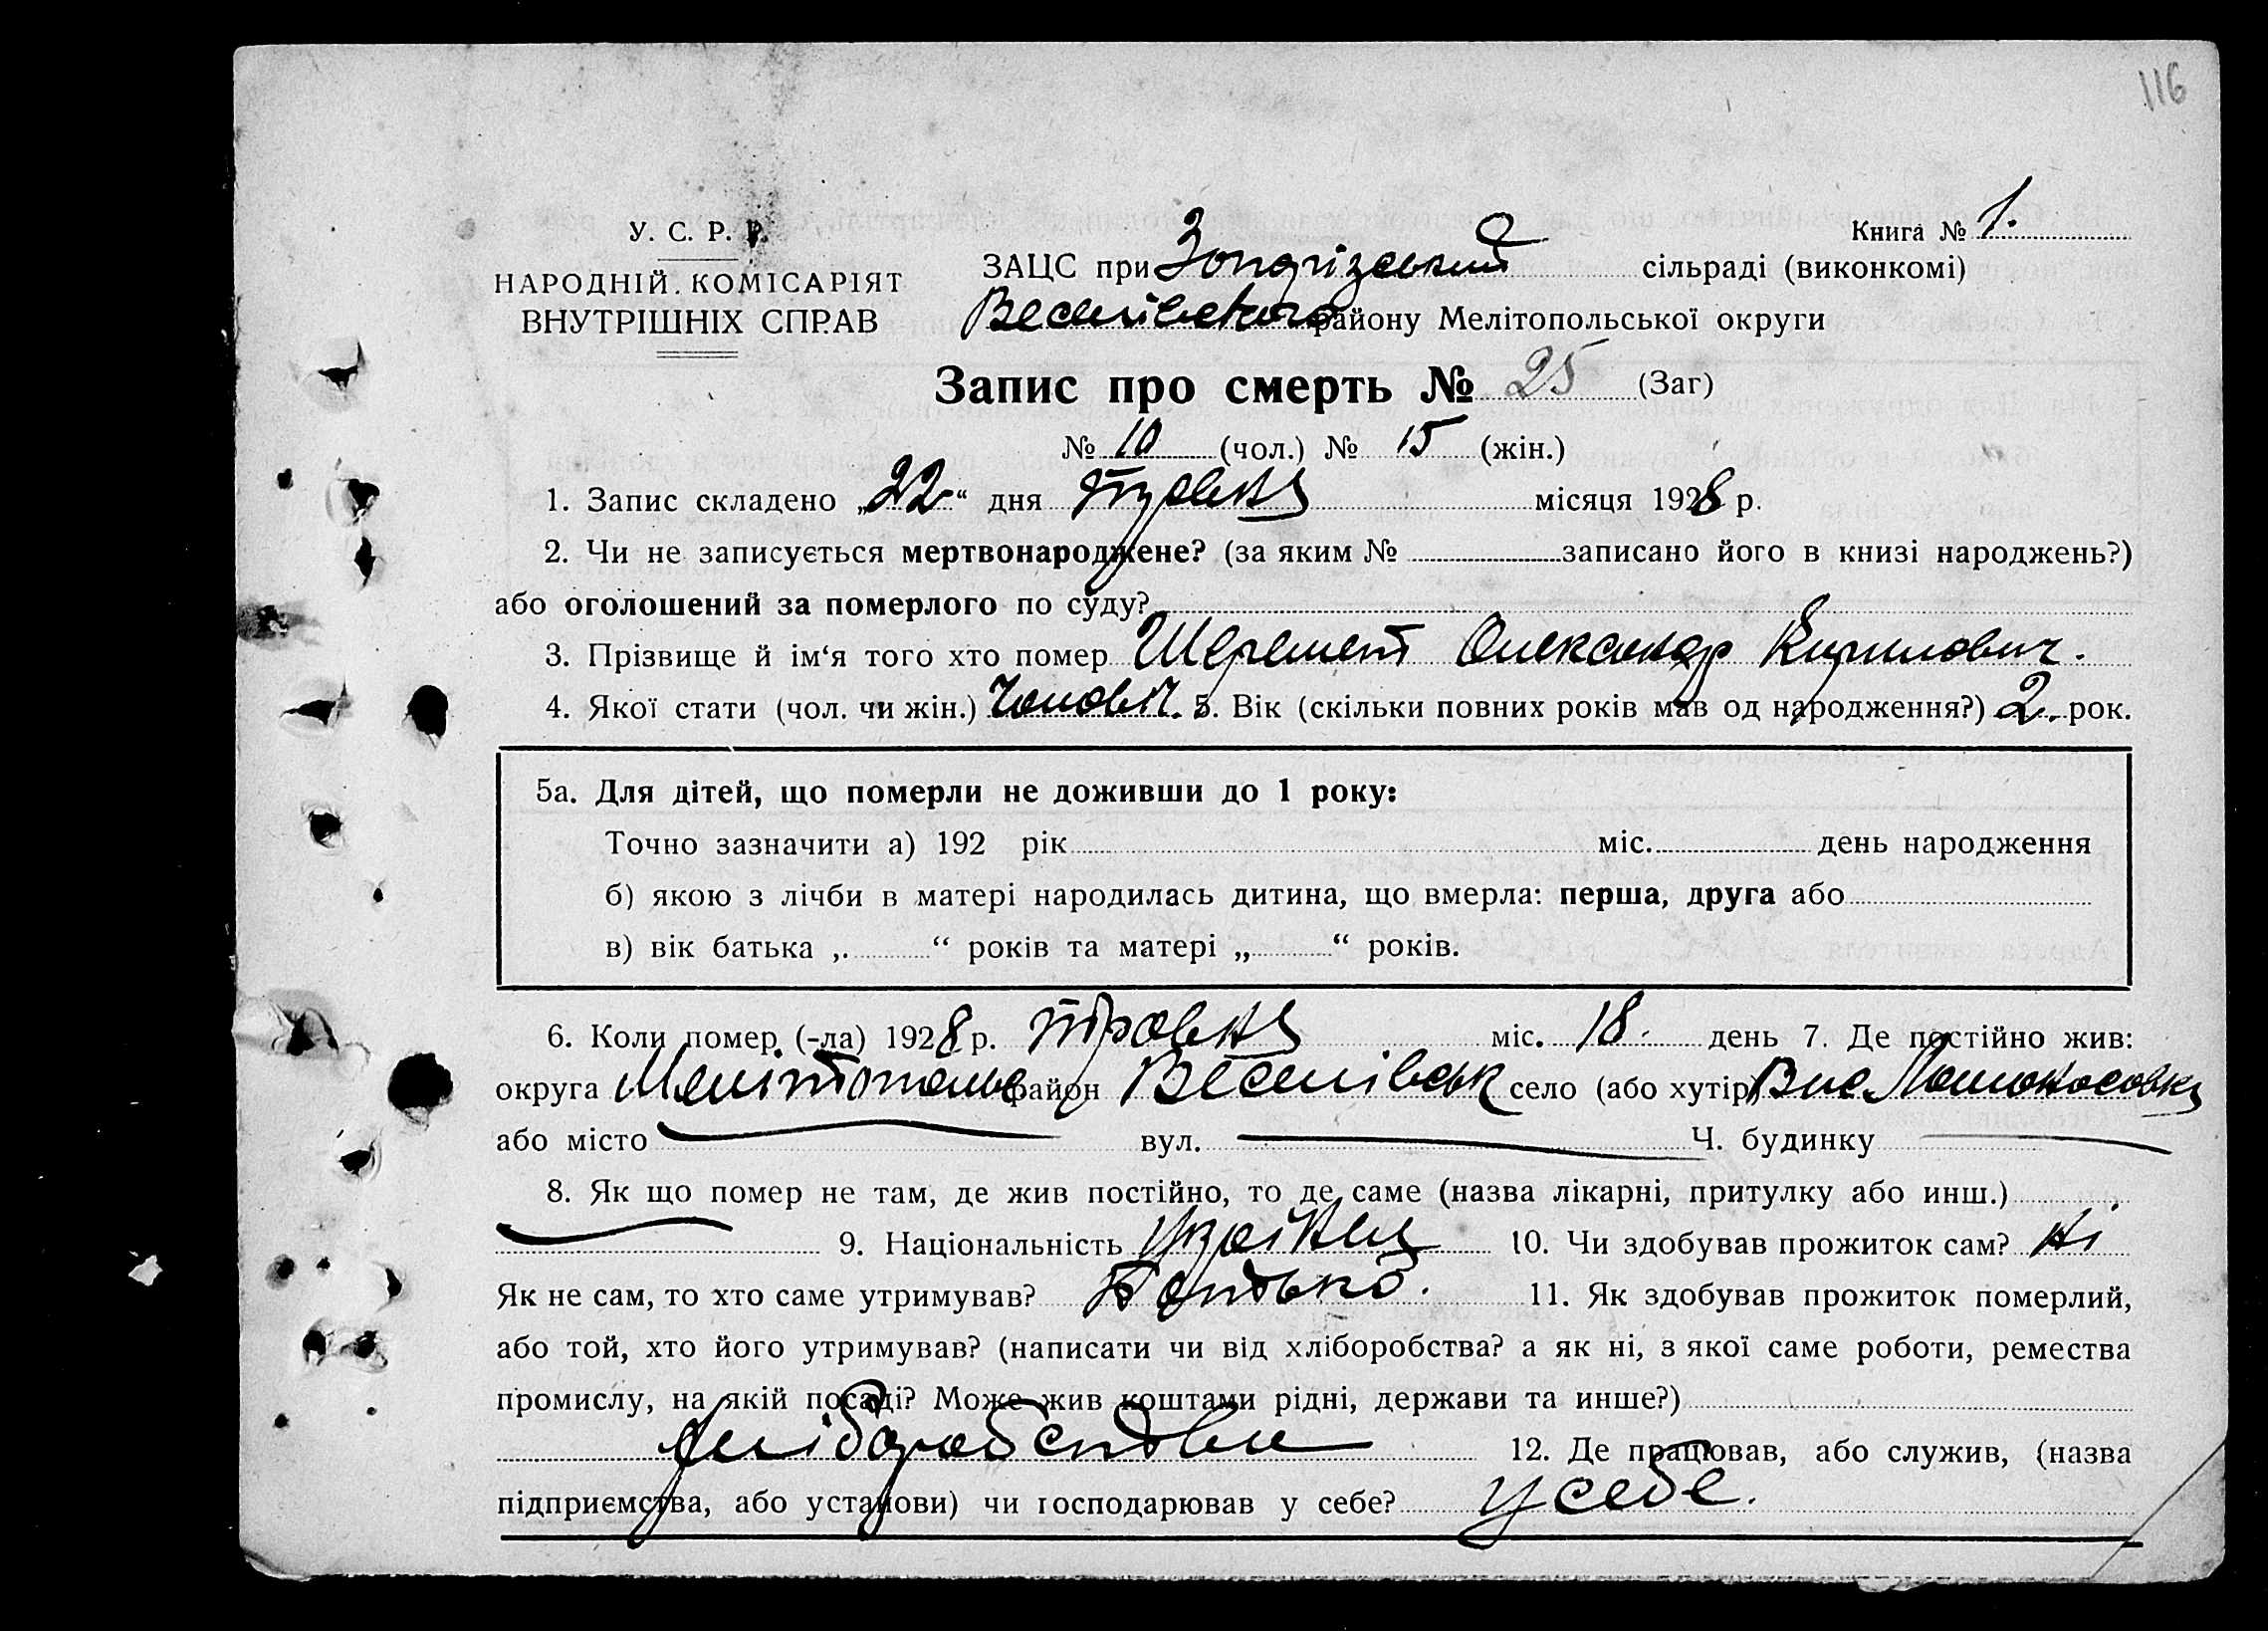 116
У. С. Р. Р.
НАРОДНІЙ КОМІСАРІЯТ
ВНУТРІШНІХ СПРАВ
Книга № 1.
ЗАЦС при сільраді (виконкомі)
Веселівського району Мелітопольської округи
Запис про смерть № 25 (Заг)
№ 10 (чол.) № 15 (жін.)
1. Запис складено „22“ дня травня місяця 1928 р.
2. Чи не записується мертвонароджене? (за яким № записано його в книзі народжень?)
або оголошений за померлого по суду?
3. Прізвище й ім‘я того хто помер Шеремет Олександр Кирилович.
4. Якої стати (чол. чи жін.) Чоловіч. 5. Вік (скільки повних років мав од народження?) 2. рок.
5а. Для дітей, що померли не доживши до 1 року:
Точно зазначити а) 192 рік міс. день народження
б) якою з лічби в матері народилась дитина, що вмерла: перша, друга або
в) вік батька „ “ років та матері „ “ років.
6. Коли помер (-ла) 1928 р. травня міс. 18. день 7. Де постійно жив:
округа Мелітопольс район Веселівськ село (або хутір)
або місто вул. Ч. будинку
8. Як що помер не там, де жив постійно, то де саме (назва лікарні, притулку або инш.)
9. Національність 10. Чи здобував прожиток сам? ні
Як не сам, то хто саме утримував? Батько. 11. Як здобував прожиток померлий,
або той, хто його утримував? (написати чи від хліборобства? а як ні, з якої саме роботи, ремества
промислу, на якій посаді? Може жив коштами рідні, держави та инше?)
12. Де працював, або служив, (назва
підприємства, або установи) чи господарював у себе? у себе.